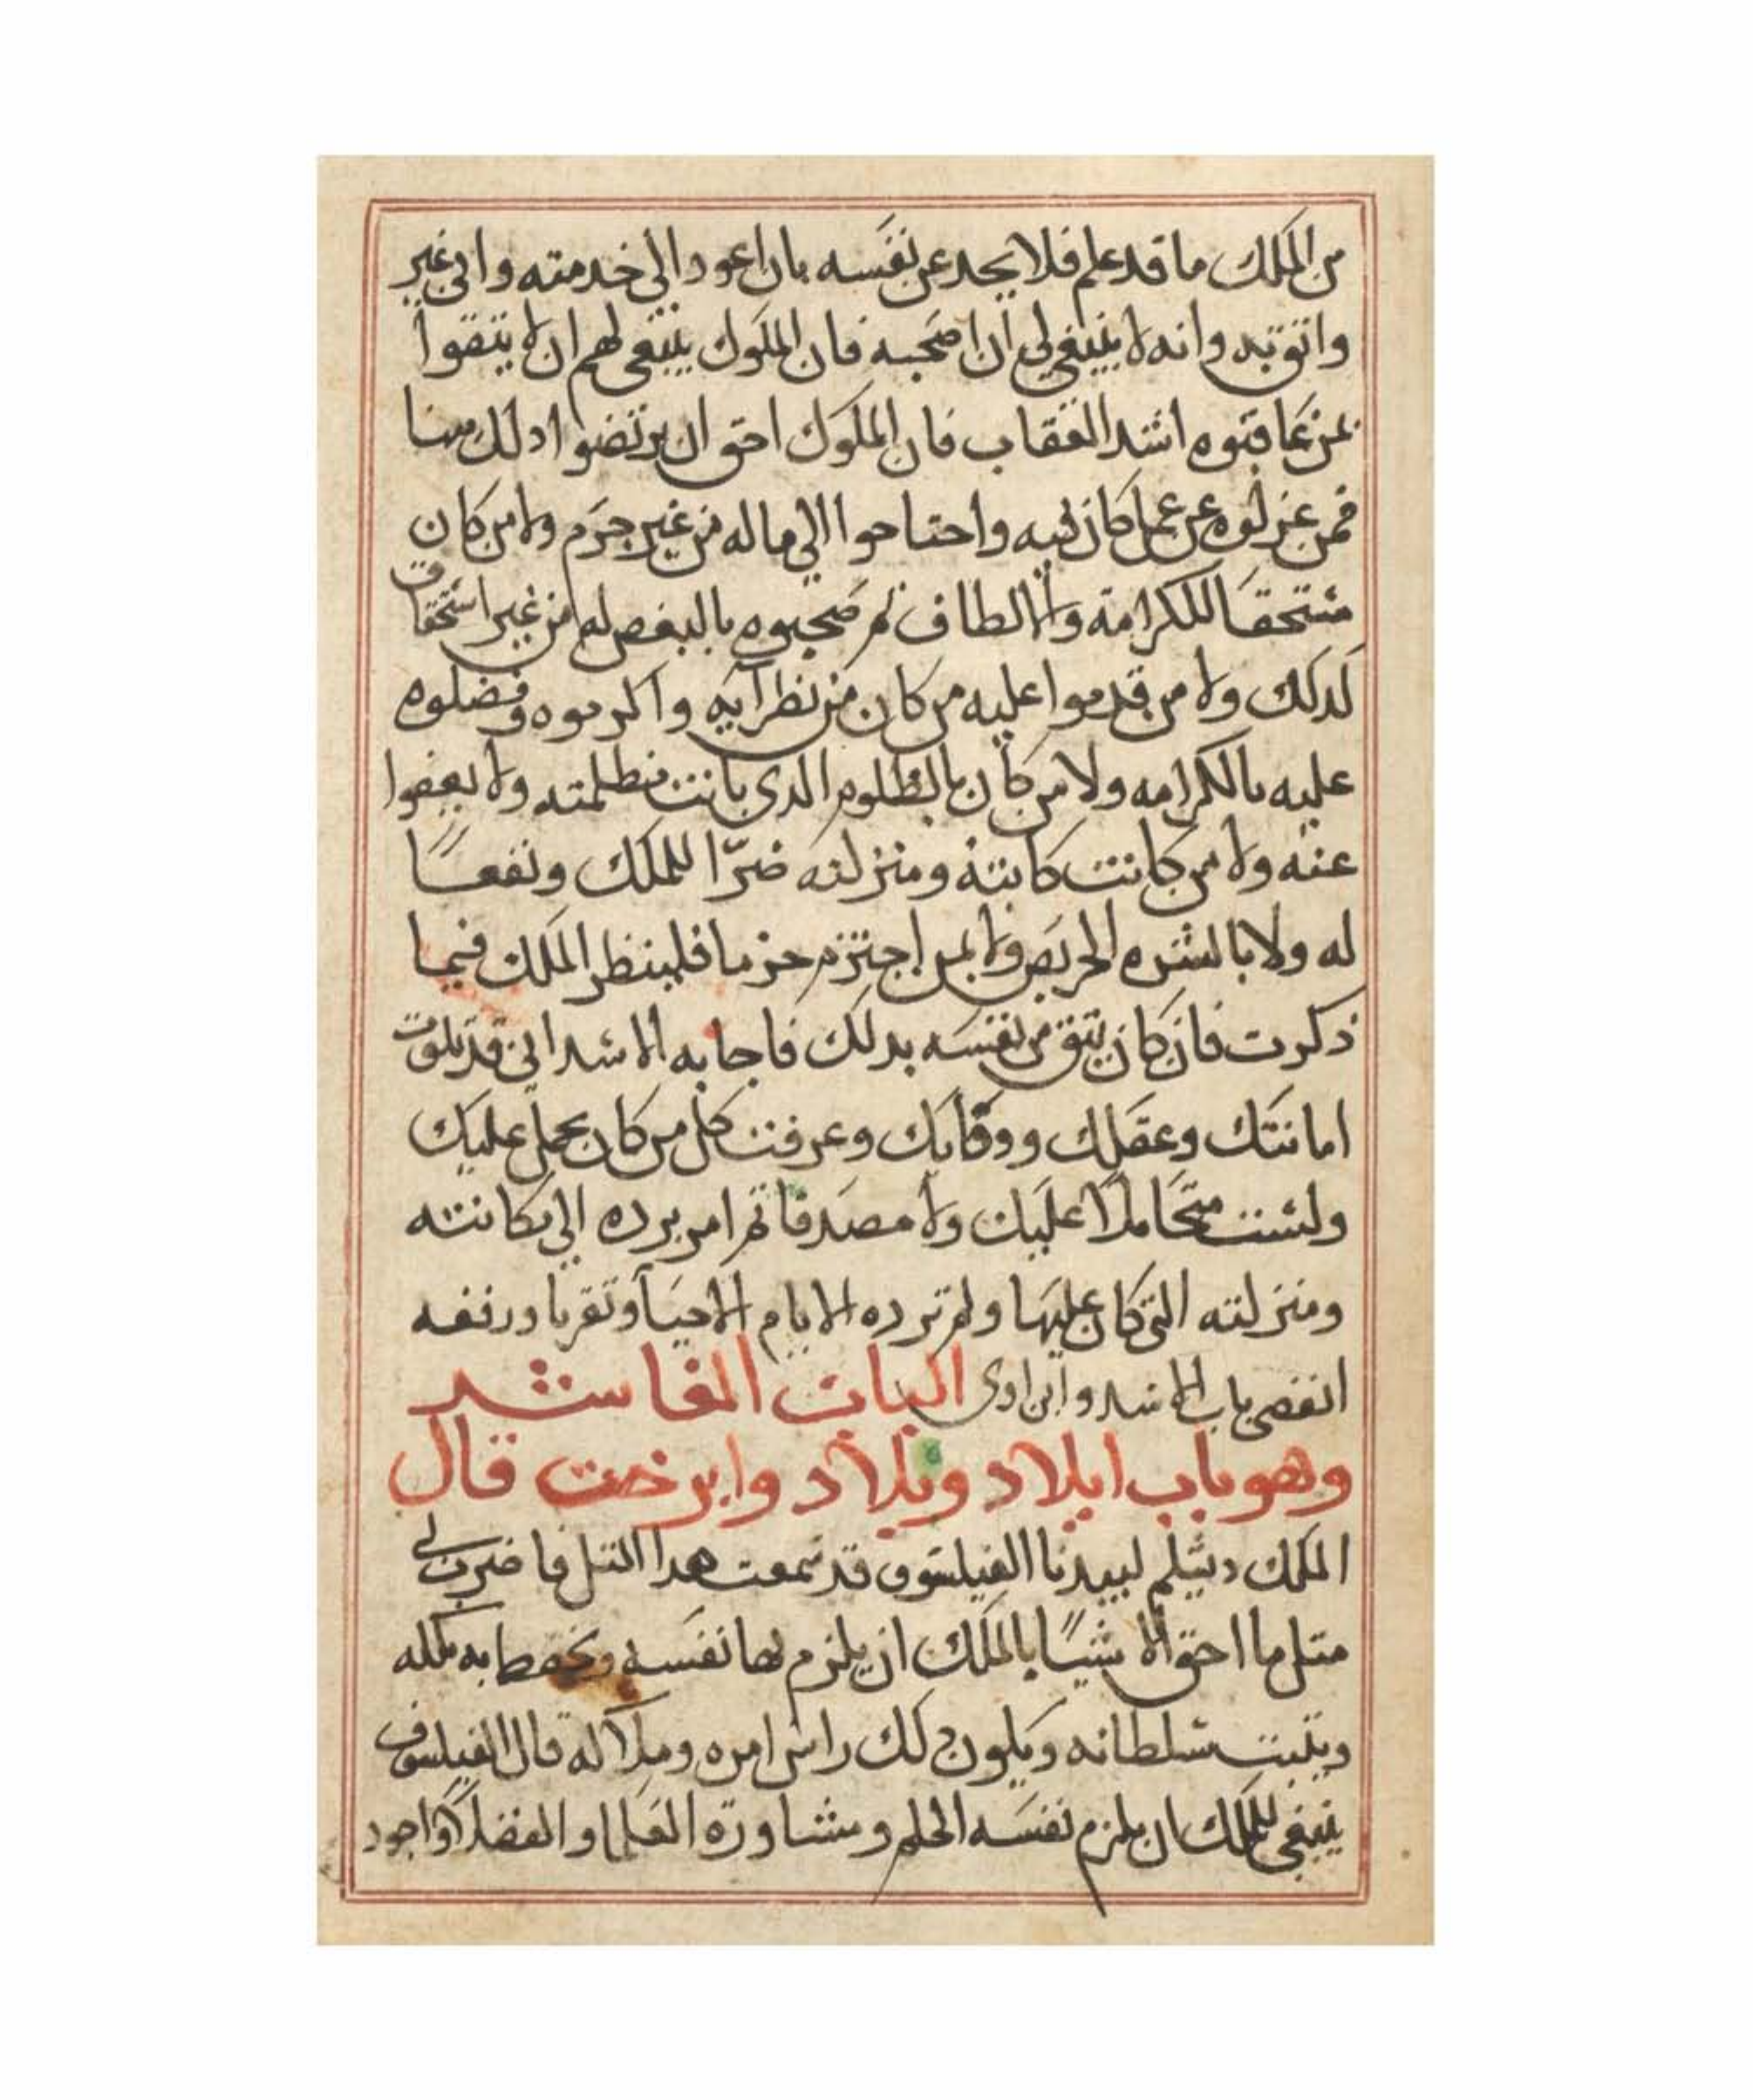 من الملك ما قد علم فلا يجد عن نفسه بان اعود الي خدمته واني غير
واثق به وانه لا ينبغي لي ان اصحبه فان الملوك ينبغي لهم ان لا يتقوا
بمن عاقبوه اشد العقاب فان الملوك احق ان يرتضوا
فمن عزلوه عن عمل كان فيه واحتاحوا الي ماله من غير جرم ولا من كان
مستحقا للكرامة والالطاف ثم صحبوه بالبغص له من غير استحقاق
لدلك ولا من قدموا عليه من كان من نظرايه واكرموه وفضلوه
عليه بالكرامه ولا من كان بالظلوم الدى بانت مظلمته ولا يعفوا
عنه ولا من كانت كانته ومنزلته ضرّا للملك ونفعًا
له ولا بالشره الحريص ولا بمن اجترم حزما فلينظر الملك فيما
ذكرت فان كان يتق من نفسه بدلك فاجابه الاسد اني قد بلوت
امانتك وعقلك ووفايك وعرفت كل من كان يحمل عليك
ولست متحاملا عليك ولا مصدقا ثم امر برده الي مكانته
ومنزلته التي كان عليها ولم ترده الايام الا حبا وتقربا ورفعه
انقضي باب الاسد وابن اوى الباب العاشر
وهو باب ايلاد وبلاد وابرخت قال
الملك دبشلم لبيدبا الفيلسوف قد سمعت هدا المثل فاضرب لي
متل ما احق الاشيًا بالملك ان يلزم بها نفسه ويحفظ به ملكه
ويثبت سلطانه ويكون دلك راس امره وملاكه قال الفيلسوف
ينبغي للملك ان يلزم نفسه الحلم ومشاورة العلما والفضلا واجود